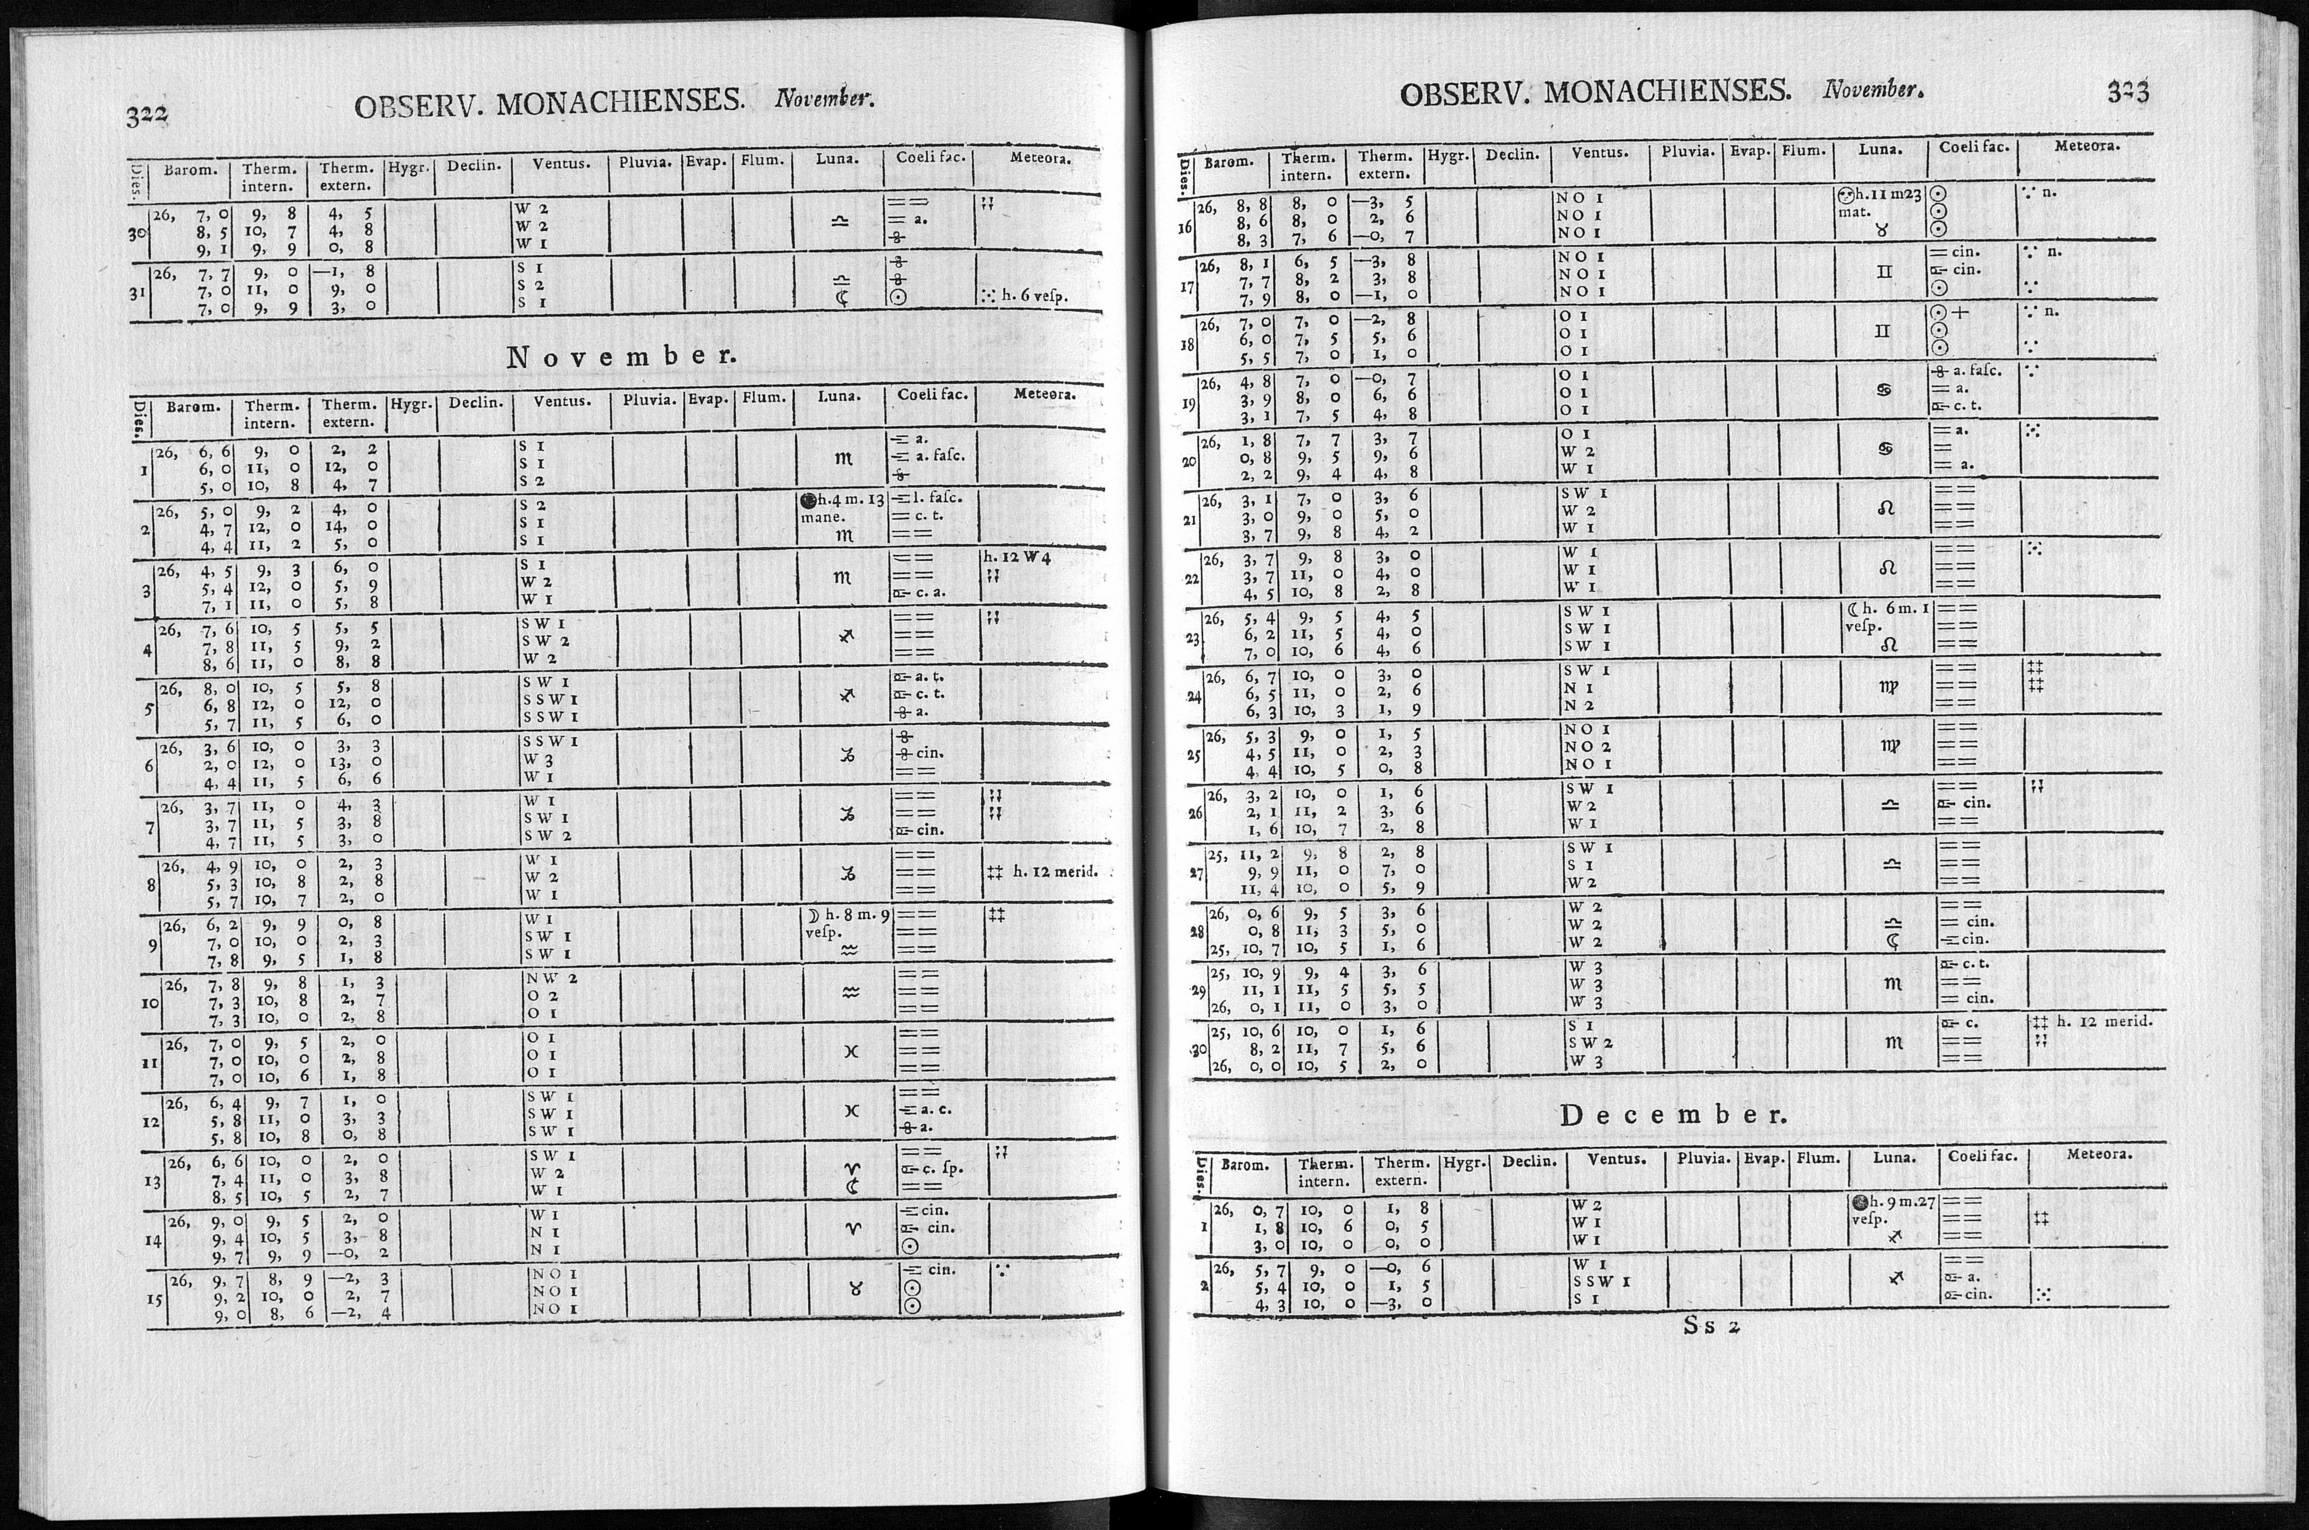 322
OBSERV. MONACHIENSES. November.
Dies. Barom. Therm. intern. Therm. extern. Hygr. Declin. Ventus. Pluvia. Evap. Flum. Luna. Coeli fac. Meteora.
26, 7, 0 9, 8 4, 5 W 2 ==
30 8, 5 10, 7 4, 8 W 2 ♎ = a.
9, 1 9, 9 0, 8 W 1
26, 7, 7 9, 0 —1, 8 S 1
31 7, 0 11, 0 9, 0 S 2 ♎
7, 0 9, 9 3, 0 S 1 ☾ ☉ h. 6 veſp.
November.
Dies. Barom. Therm. intern. Therm. extern. Hygr. Declin. Ventus. Pluvia. Evap. Flum. Luna. Coeli fac. Meteora.
26, 6, 6 9, 0 2, 2 S 1 a.
1 6, 0 11, 0 12, 0 S 1 ♏ a. faſc.
5, 0 10, 8 4, 7 S 2
26, 5, 0 9, 2 4, 0 S 2 ● h. 4 m. 13 l. faſc.
2 4, 7 12, 0 14, 0 S 1 mane. = c. t.
4, 4 11, 2 5, 0 S 1 ♏ ==
26, 4, 5 9, 3 6, 0 S 1 == h. 12 W 4
3 5, 4 12, 0 5, 9 W 2 ♏ ==
7, 1 11, 0 5, 8 W 1 c. a.
26, 7, 6 10, 5 5, 5 S W 1 ==
4 7, 8 11, 5 9, 2 S W 2 ♐ ==
8, 6 11, 0 8, 8 W 2 ==
26, 8, 0 10, 5 5, 8 S W 1 a. t.
5 6, 8 12, 0 12, 0 S S W 1 ♐ c. t.
5, 7 11, 5 6, 0 S S W 1 a.
26, 3, 6 10, 0 3, 3 S S W 1
6 2, 0 12, 0 13, 0 W 3 ♑ cin.
4, 4 11, 5 6, 6 W 1 ==
26, 3, 7 11, 0 4, 3 W 1 ==
7 3, 7 11, 5 3, 8 S W 1 ♑ ==
4, 7 11, 5 3, 0 S W 2 cin.
26, 4, 9 10, 0 2, 3 W 1 ==
8 5, 3 10, 8 2, 8 W 2 ♑ == ‡‡ h. 12 merid.
5, 7 10, 7 2, 0 W 1 ==
26, 6, 2 9, 9 0, 8 W 1 ☽ h. 8 m. 9 == ‡‡
9 7, 0 10, 0 2, 3 S W 1 veſp. ==
7, 8 9, 5 1, 8 S W 1 ♒ ==
26, 7, 8 9, 8 1, 3 N W 2 ==
10 7, 3 10, 8 2, 7 O 2 ♒ ==
7, 3 10, 0 2, 8 O 1 ==
26, 7, 0 9, 5 2, 0 O 1 ==
11 7, 0 10, 0 2, 8 O 1 ♓ ==
7, 0 10, 6 1, 8 O 1 ==
26, 6, 4 9, 7 1, 0 S W 1 ==
12 5, 8 11, 0 3, 3 S W 1 ♓ a. c.
5, 8 10, 8 0, 8 S W 1 a.
26, 6, 6 10, 0 2, 0 S W 1 ==
13 7, 4 11, 0 3, 8 W 2 ♈ c. ſp.
8, 5 10, 5 2, 7 W 1 ☾ ==
26, 9, 0 9, 5 2, 0 W 1 cin.
14 9, 4 10, 5 3, 8 N 1 ♈ cin.
9, 7 9, 9 —0, 2 N 1 ☉
26, 9, 7 8, 9 —2, 3 N O 1 cin. ∵
15 9, 2 10, 0 2, 7 N O 1 ♉ ☉
9, 0 8, 6 —2, 4 N O 1 ☉
OBSERV. MONACHIENSES. November.
323
Dies. Barom. Therm. intern. Therm. extern. Hygr. Declin. Ventus. Pluvia. Evap. Flum. Luna. Coeli fac. Meteora.
26, 8, 8 8, 0 —3, 5 N O 1 h. 11 m 23 ☉ ∵ n.
16 8, 6 8, 0 2, 6 N O 1 mat. ☉
8, 3 7, 6 —0, 7 N O 1 ♉ ☉
26, 8, 1 6, 5 —3, 8 N O 1 = cin. ∵ n.
17 7, 7 8, 2 3, 8 N O 1 ♊ cin.
7, 9 8, 0 —1, 0 N O 1 ☉ ∵
26, 7, 0 7, 0 —2, 8 O 1 ☉ + ∵ n.
18 6, 0 7, 5 5, 6 O 1 ♊ ☉
5, 5 7, 0 1, 0 O 1 ☉ ∵
26, 4, 8 7, 0 —0, 7 O 1 a. faſc. ∵
19 3, 9 8, 0 6, 6 O 1 ♋ = a.
3, 1 7, 5 4, 8 O 1 c. t.
26, 1, 8 7, 7 3, 7 O 1 = a.
20 0, 8 9, 5 9, 6 W 2 ♋ =
2, 2 9, 4 4, 8 W 1 = a.
26, 3, 1 7, 0 3, 6 S W 1 ==
21 3, 0 9, 0 5, 0 W 2 ♌ ==
3, 7 9, 8 4, 2 W 1 ==
26, 3, 7 9, 8 3, 0 W 1 ==
22 3, 7 11, 0 4, 0 W 1 ♌ ==
4, 5 10, 8 2, 8 W 1 ==
26, 5, 4 9, 5 4, 5 S W 1 ☾ h. 6 m. 1 ==
23 6, 2 11, 5 4, 0 S W 1 veſp. ==
7, 0 10, 6 4, 6 S W 1 ♌ ==
26, 6, 7 10, 0 3, 0 S W 1 == ‡‡
24 6, 5 11, 0 2, 6 N 1 ♍ == ‡‡
6, 3 10, 3 1, 9 N 2 ==
26, 5, 3 9, 0 1, 5 N O 1 ==
25 4, 5 11, 0 2, 3 N O 2 ♍ ==
4, 4 10, 5 0, 8 N O 1 ==
26, 3, 2 10, 0 1, 6 S W 1 ==
26 2, 1 11, 2 3, 6 W 2 ♎ cin.
1, 6 10, 7 2, 8 W 1 ==
25, 11, 2 9, 8 2, 8 S W 1 ==
27 9, 9 11, 0 7, 0 S 1 ♎ ==
11, 4 10, 0 5, 9 W 2 ==
26, 0, 6 9, 5 3, 6 W 2 ==
28 0, 8 11, 3 5, 0 W 2 ♎ = cin.
25, 10, 7 10, 5 1, 6 W 2 ☾ cin.
25, 10, 9 9, 4 3, 6 W 3 c. t.
29 11, 1 11, 5 5, 5 W 3 ♏ ==
26, 0, 1 11, 0 3, 0 W 3 = cin.
25, 10, 6 10, 0 1, 6 S 1 c. ‡‡ h. 12 merid.
30 8, 2 11, 7 5, 6 S W 2 ♏ ==
26, 0, 0 10, 5 2, 0 W 3 ==
December.
Dies. Barom. Therm. intern. Therm. extern. Hygr. Declin. Ventus. Pluvia. Evap. Flum. Luna. Coeli fac. Meteora.
26, 0, 7 10, 0 1, 8 W 2 ● h. 9 m. 27 ==
1 1, 8 10, 6 0, 5 W 1 veſp. == ‡‡
3, 0 10, 0 0, 0 W 1 ♐ ==
26, 5, 7 9, 0 —0, 6 W 1 ==
2 5, 4 10, 0 1, 5 S S W 1 ♐ a.
4, 3 10, 0 —3, 0 S 1 cin.
Ss 2